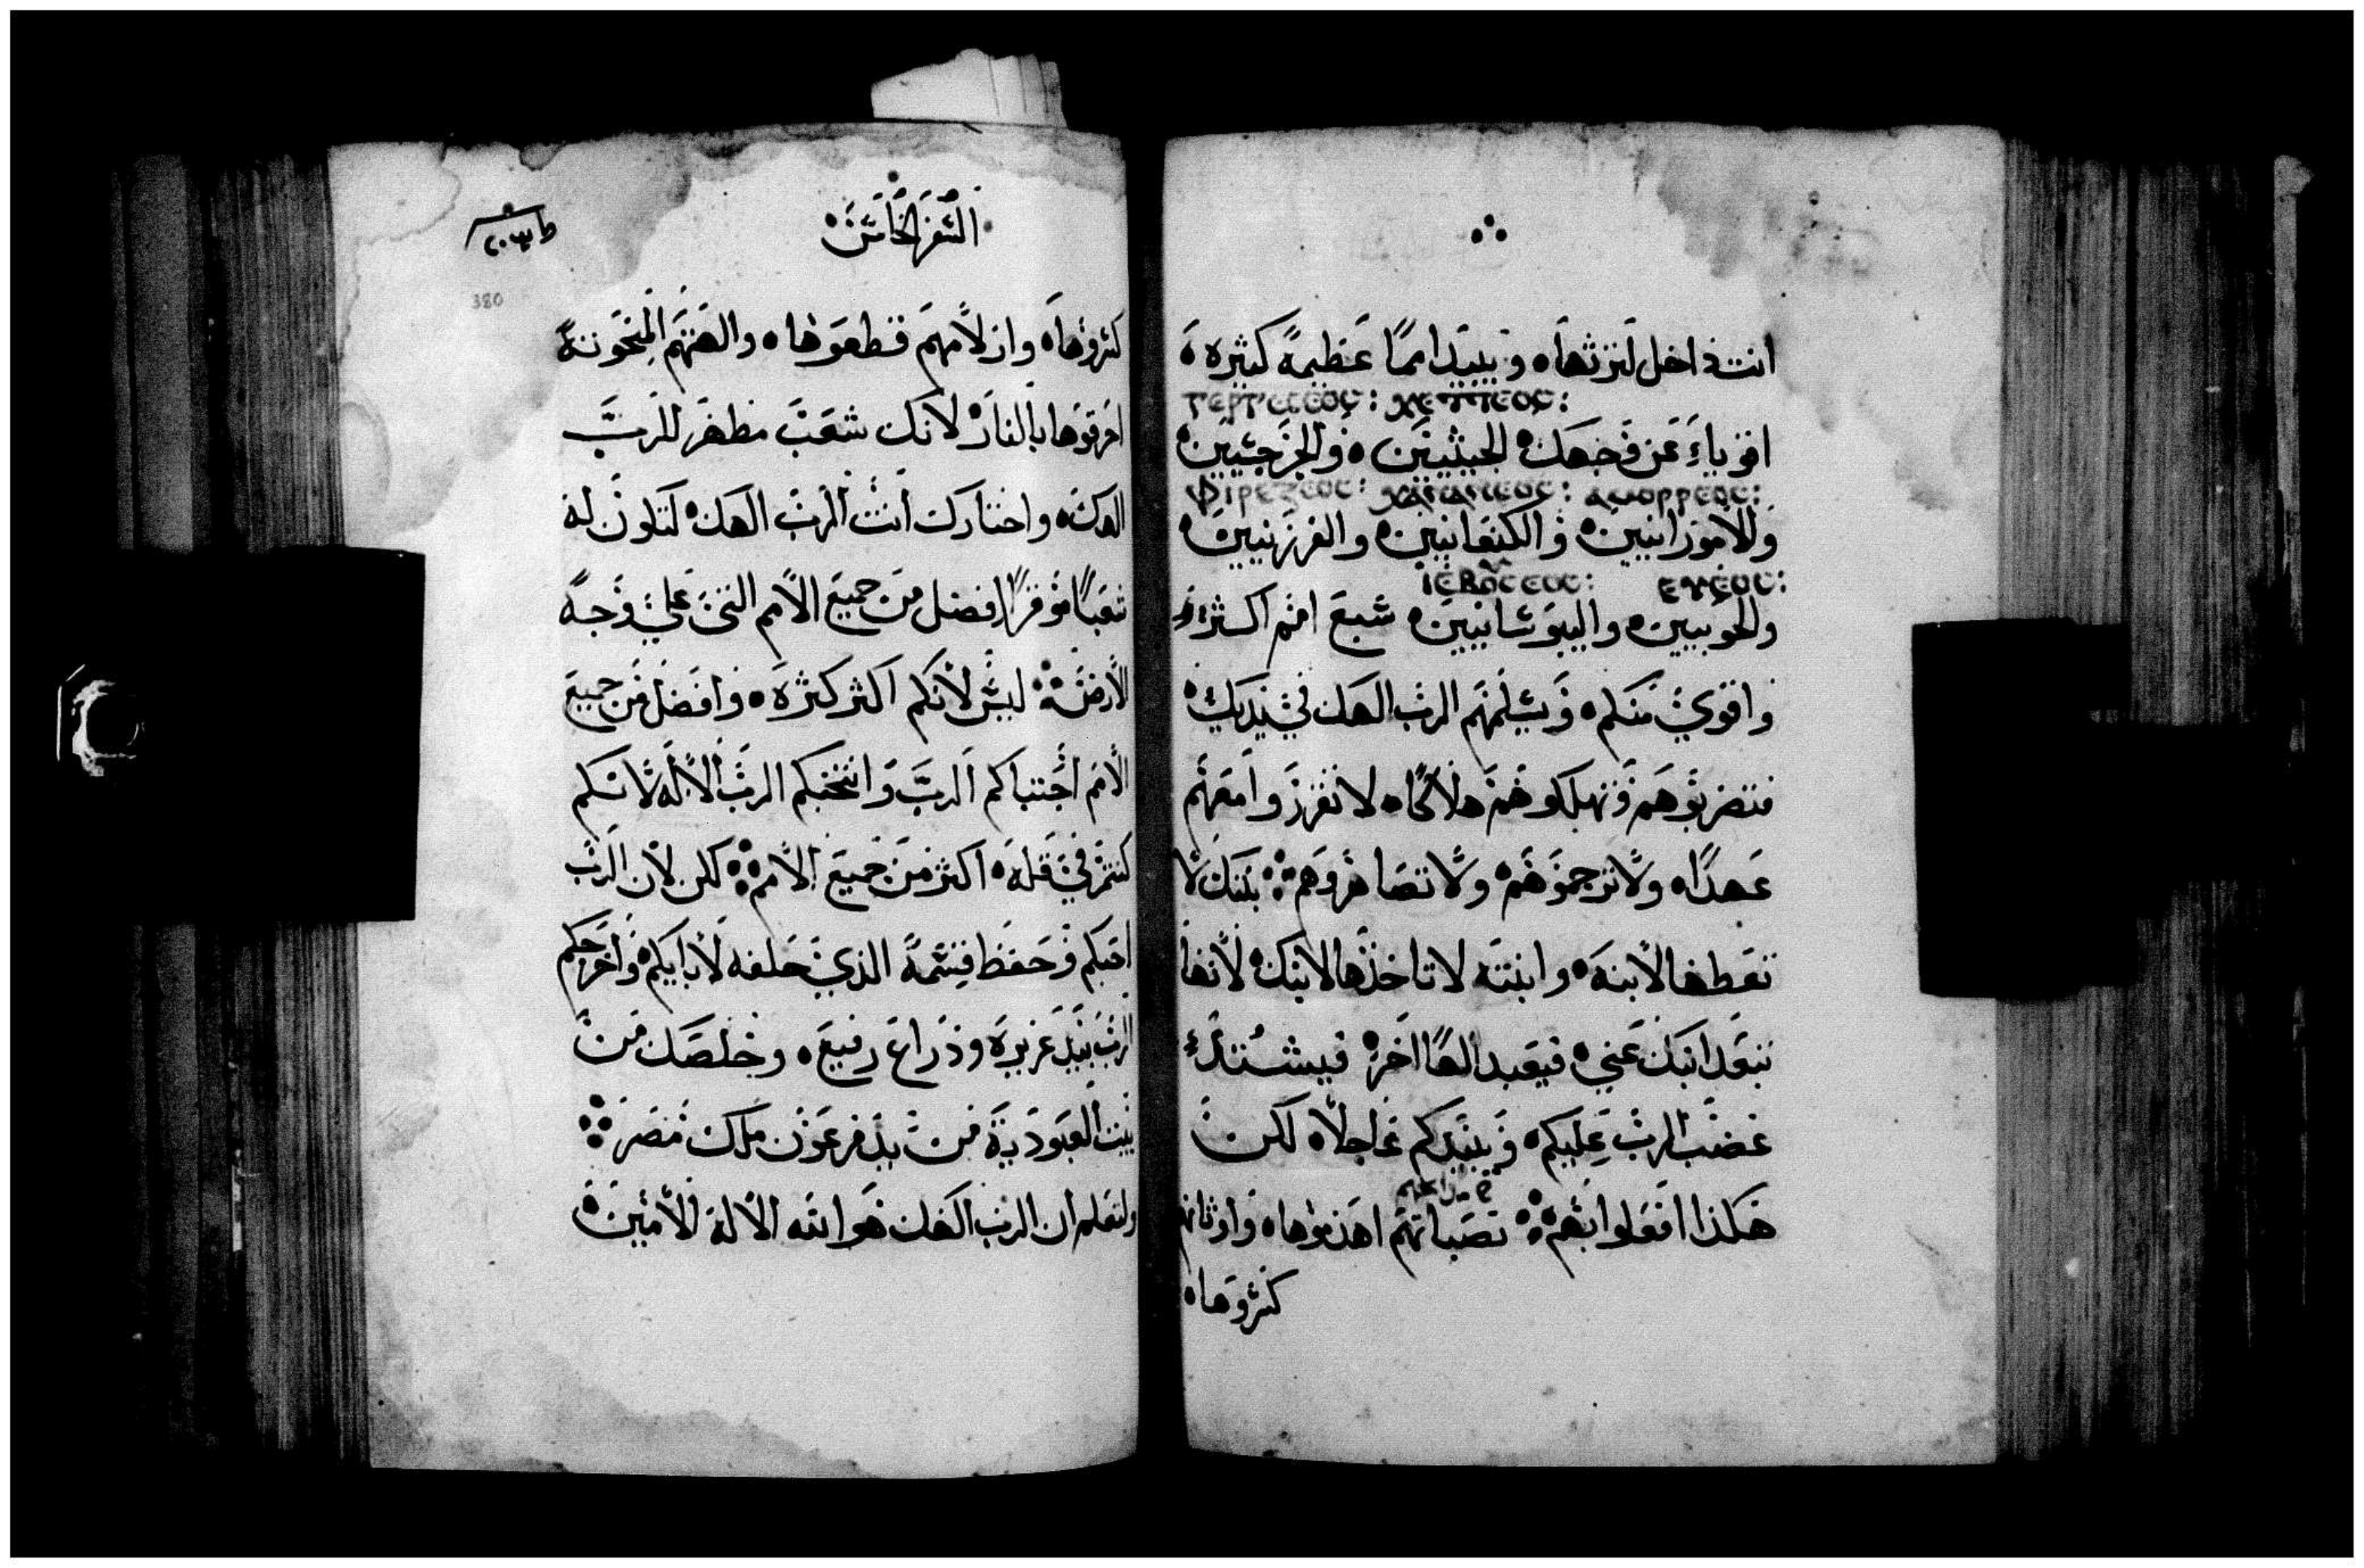 انت داخل لترثها ٥ ويبيد امما عظيمة كثيره ٥
ⲅⲉⲣⲅⲉⲥⲉⲟⲥ: ⲭⲉⲧⲧⲉⲟⲥ:
اقوياء عن وجهك ٥ الحيثيين ٥ والجرجسيين ٥
ⲫⲉⲣⲉⲍⲉⲟⲥ: ⲭⲁⲛⲁⲛⲉⲟⲥ: ⲁⲙⲟⲣⲣⲉⲟⲥ:
والامورانيين ٥ والكنعانيين ٥ والفرزيين ٥
ⲓⲉⲃⲟⲥⲉⲟⲥ: ⲉⲩⲉⲟⲥ:
والحويين ٥ واليبوسانيين ٥ سبع امم اكثر
واقوي منكم ٥ ويسلمهم الرب الهك في يديك ٥
فتضربوهم وتهلكوهم هلاكا ٥ لا تقرروا معهم
عهدا ٥ ولا ترحموهم ٥ ولا تصاهروهم ܀ بنتك لا
تعطها لابنه ٥ وابنته لا تاخذها لابنك ٥ لانها
تبعد ابنك عني ٥ فيعبد الها اخر ٥ فيشتد
غضب الرب عليكم ٥ ويبيدكم عاجلا ٥ لكن
هكذا افعلوا بهم ܀ نصباتهم اهدموها ٥ واوثانهم
كسروها ٥
السفر الخامس ٥
380
كسروها ٥ وازلامهم قطعوها ٥ والهتهم المنحوته
احرقوها بالنار ٥ لانك شعب مطهر للرب
الهك ٥ واختارك انت الرب الهك ٥ لتكون له
شعبا موقرا افضل من جميع الامم التي علي وجه
الارض ܀ ليس لانكم اكثر كثره ٥ وافضل من جميع
الامم اجتباكم الرب وانتخبكم الرب الاله لانكم
كنتم في قله ٥ اكثر من جميع الامم ܀ لكن لان الرب
احبكم وحفظ قسمه الذي حلفه لابايكم ٥ واخرجكم
الرب بيد عزيزه وذراع رفيع ٥ وخلصك من
بيت العبوديه من يد فرعون ملك مصر ܀
ولتعلم ان الرب الهك هو الله الاله الامين ٥